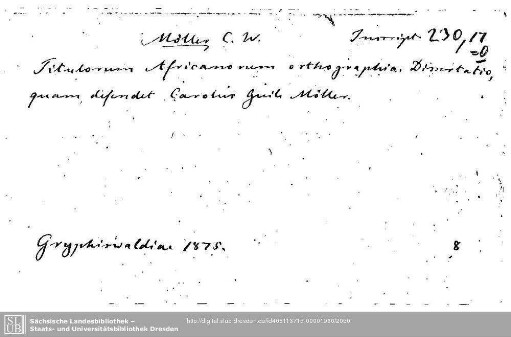 Möller C. W. Inscript. 230,17
=0
Titulorum Africanorum orthographia. Dissertatio,
quam defendet Carolus Guil. Möller.
Gryphiswaldiae 1875. 8
SLUB
Sächsische Landesbibliothek –
Staats- und Universitätsbibliothek Dresden